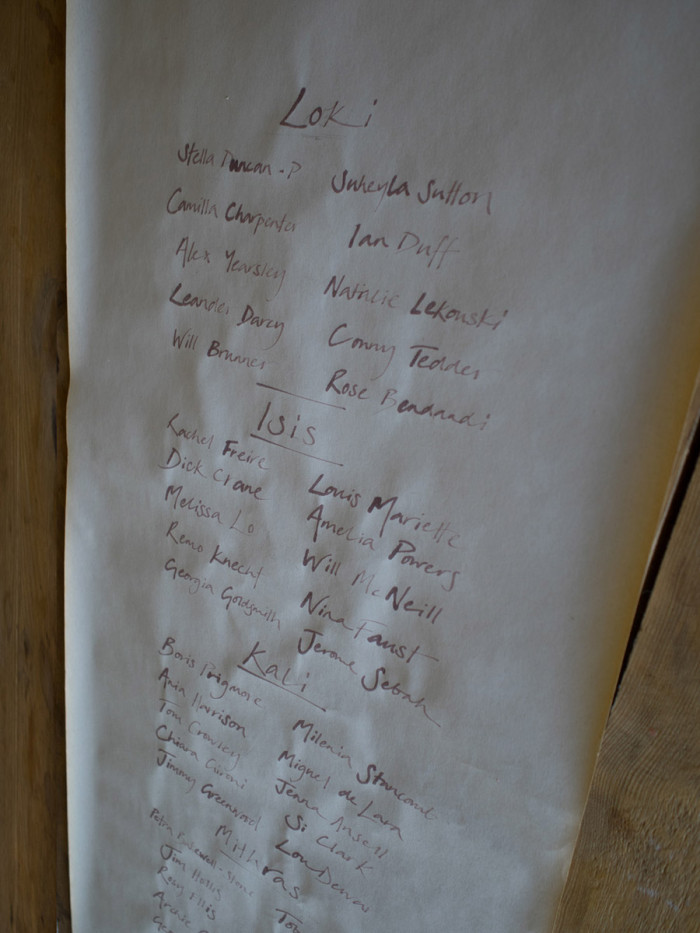 Loki
Stella Duncan-P Suheyla Sutton
Camilla Charpentier Ian Duff
Alex Yearsley Natalie Lekouski
Leander Darcy Conny Tedder
Will Brunner Rose Bendandi
Isis
Rachel Freire Louis Mariette
Dick Crane Amelia Powers
Melissa Lo Will McNeill
Remo Knecht Nina Faust
Georgia Goldsmith Jerome Sebah
Kali
Boris Prigmore Milenia Stancomb
Ania Harrison Miguel de Lara
Tom Crowley Jenna Ansell
Chiara Si Clark
Jimmy Greenwood Lou
Mithras
Petra
Jim Hollis
Rory Ellis